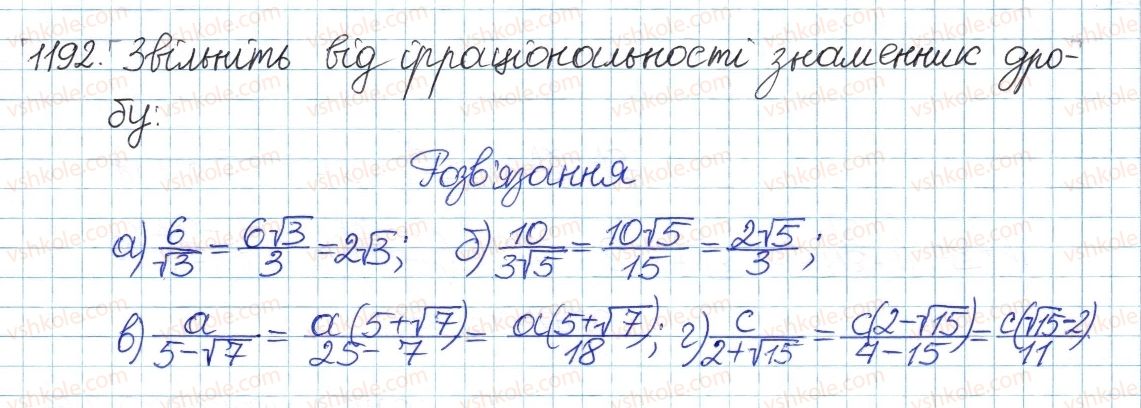 1192. Звільніть від ірраціональності знаменник дро-
бу:
Розв'язання
а) 6/√3 = 6√3/3 = 2√3; б) 10/3√5 = 10√5/15 = 2√5/3;
в) a/5-√7 = a(5+√7)/25-7 = a(5+√7)/18; г) c/2+√15 = c(2-√15)/4-15 = c(√15-2)/11